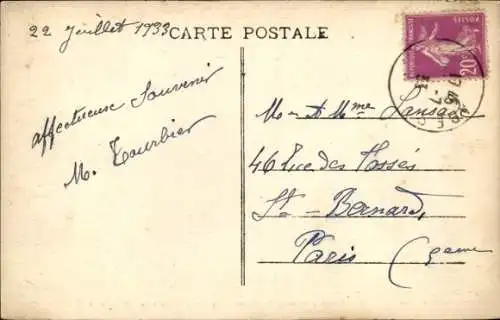 22 Juillet 1933
CARTE POSTALE
affectueuse Souvenir
M. Tourbier
M. & Mme
46 Rue des Fossés
St - Bernard,
Paris (5eme
20